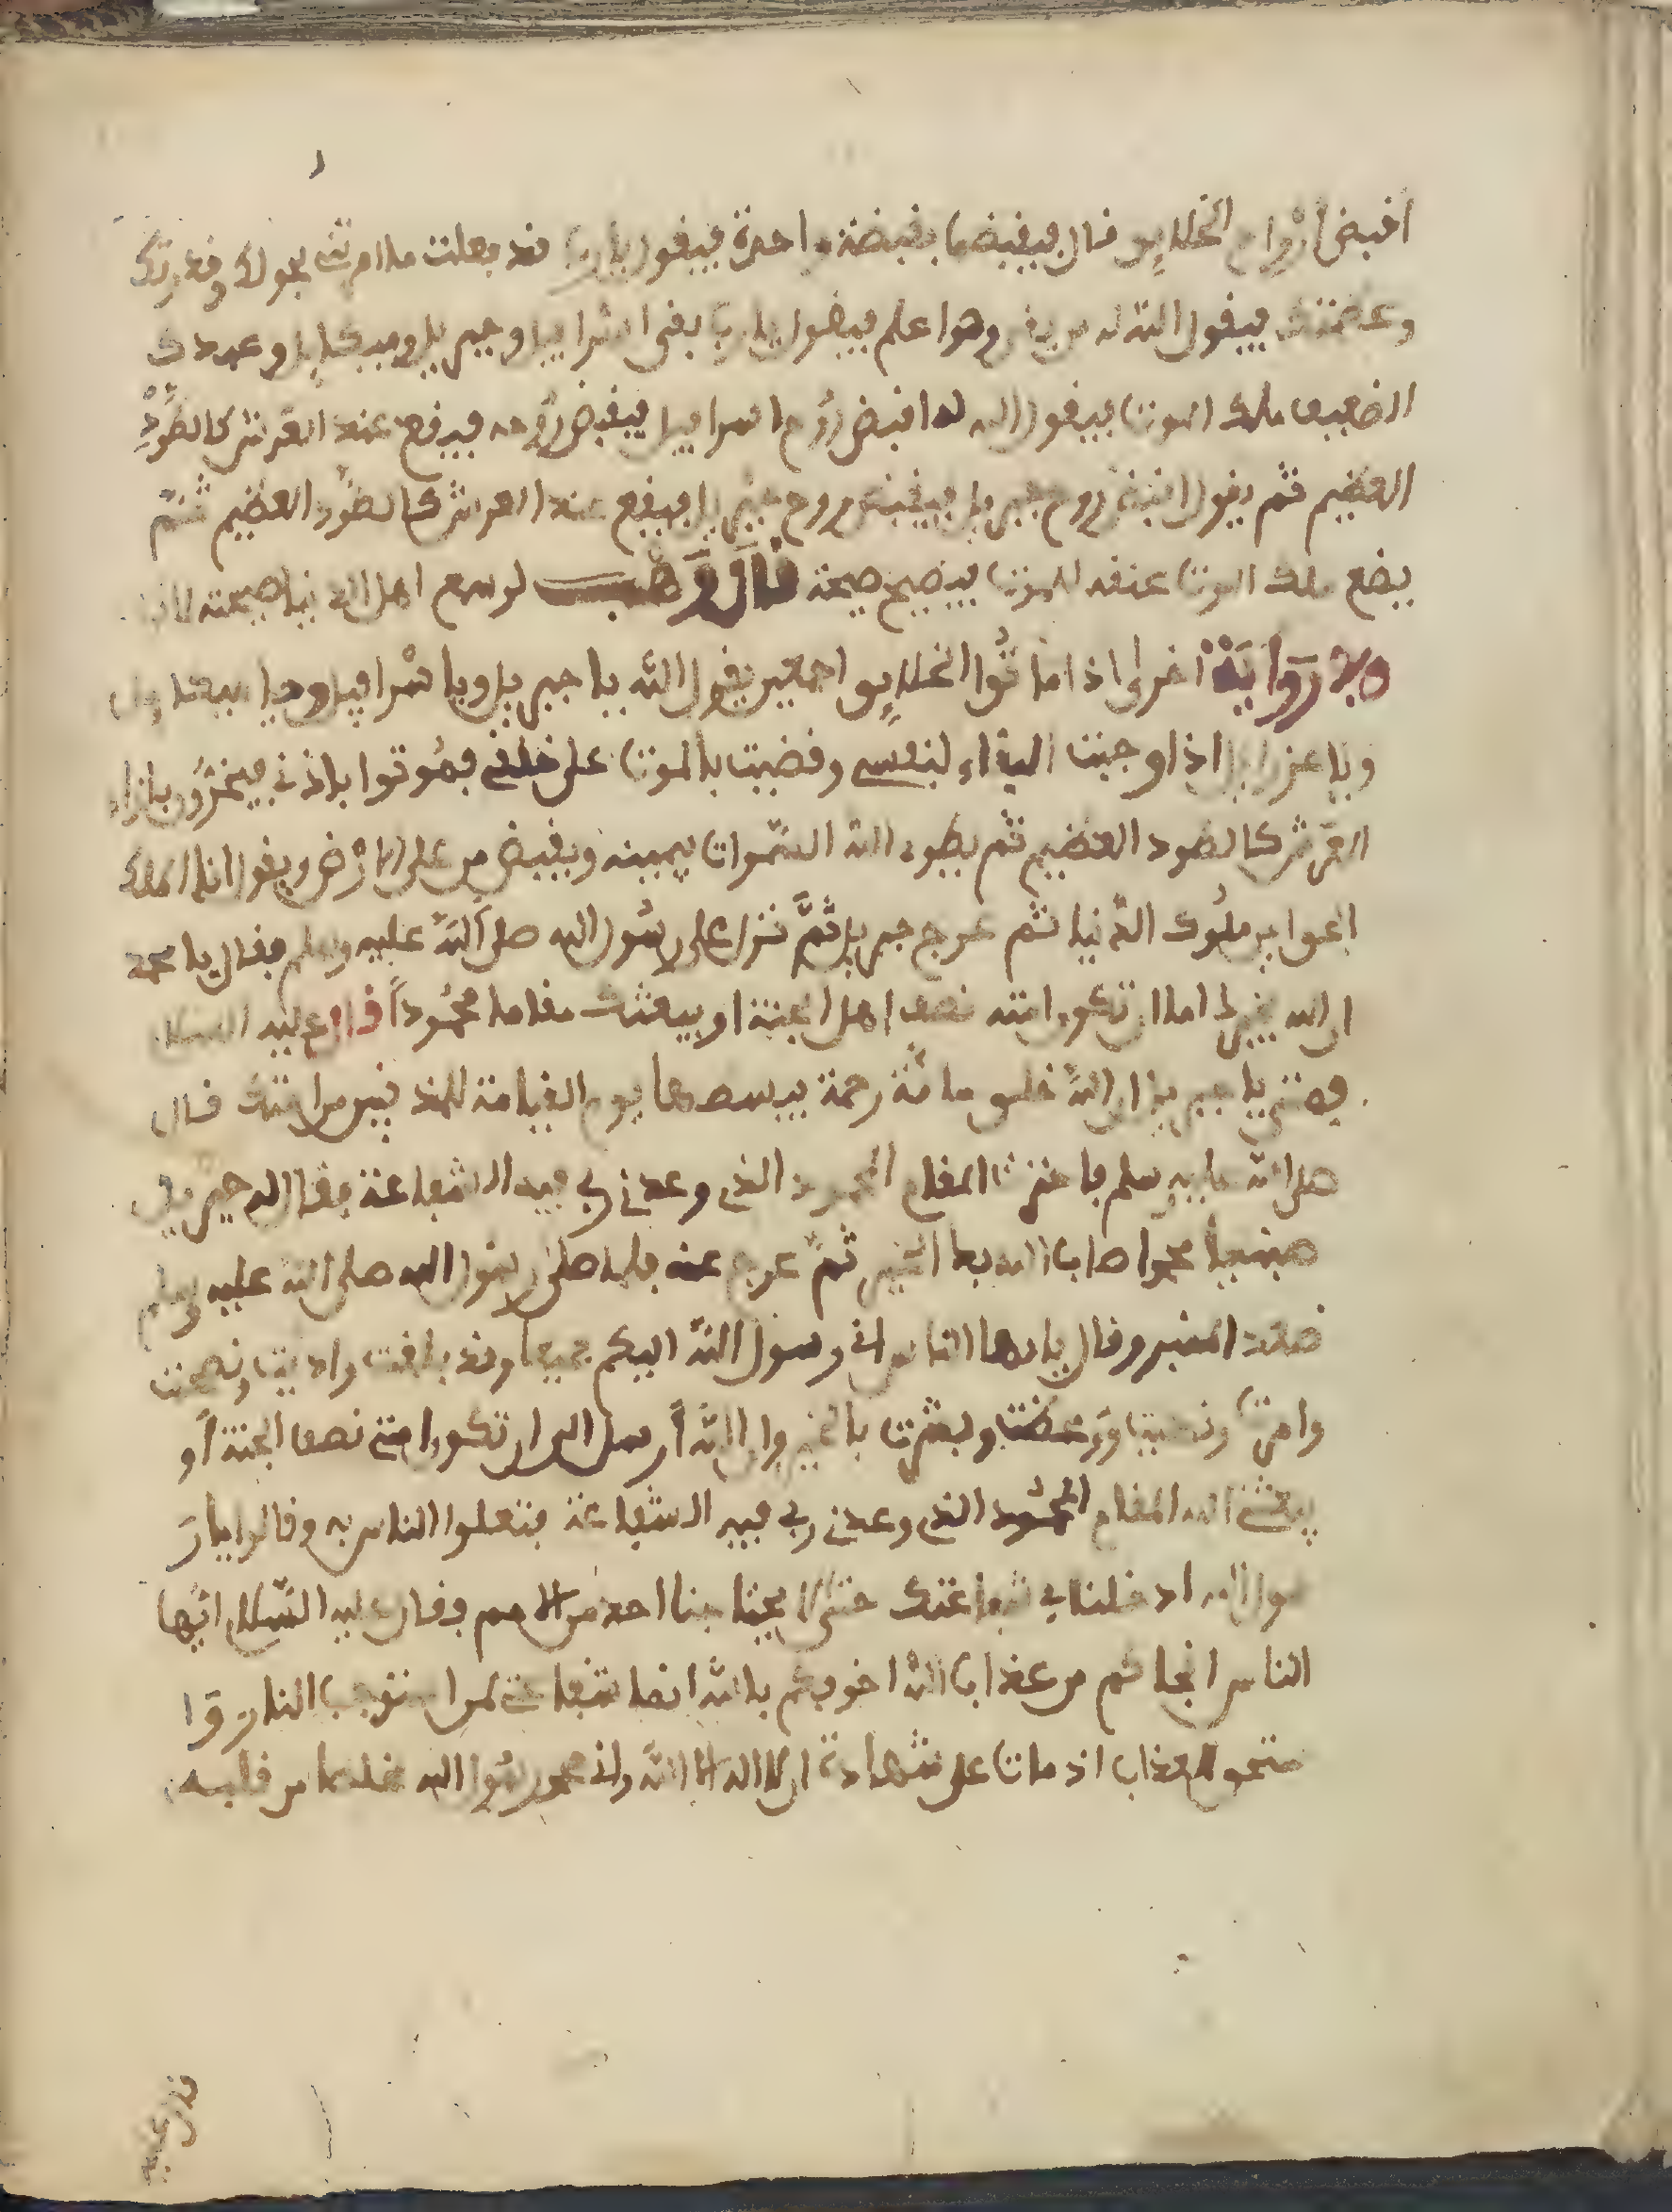 اقبض ارواح الخلايق قال فيقبضها بقبضة واحدة فيقول يا رب قد فعلت ما امرتني بحولك وقدرتك
وعظمتك فيقول الله له من بقي وهو اعلم فيقول يا رب بقى اسرافيل وجبريل وميكايل وعبدك
الضعيف ملك الموت فيقول الله له اقبض روح اسرافيل فيقبض روحه فيرفع عند العرش كالطود
العظيم ثم يقول اقبض روح جبريل فيقبض روح جبريل فيقع عند العرش كالطود العظيم ثم
يضع ملك الموت عنقه للموت فيصيح صيحة قال وهب لو سمع اهل الدنيا صيحته لماتوا
وفي رواية اخرى اذا ماتوا الخلايق اجمعين يقول الله يا جبريل ويا اسرافيل ويا ميكايل
ويا عزرايل اذا وجبت البقاء لنفسي وقضيت بالموت على خلقي فموتوا باذني فيخرون بازاء
العرش كالطود العظيم ثم يطوي الله السموات بيمينه ويقبض من على الارض ويقول انا الملك
اين ملوك الدنيا ثم عرج جبريل ثم نزل على رسول الله صلى الله عليه وسلم فقال يا محمد
ان الله يخيرك اما ان تكون امته نصف اهل الجنة او يبعثك مقاما محمودا قال عليه السلام
يا جبريل ان الله خلق مائة رحمة يبسطها يوم القيامة للمذنبين من امتك قال
صلى الله عليه وسلم فاخترت المقام المحمود الذي وعدني ربي فيه الشفاعة فقال له جبريل
هنيئا محمد اصاب الله بك الخير ثم عرج عنه فلما صلى رسول الله صلى الله عليه وسلم
صعد المنبر وقال يايها الناس اني رسول الله اليكم جميعا وقد بلغت واديت ونصحت
وامرت ونهيت ووعظت وبشرت بالخير وان الله ارسل الي ان تكون امتي نصف الجنة او
يبعثني الله المقام المحمود الذي وعدني ربي فيه الشفاعة فتعلقوا الناس به وقالوا يا ر
سول الله ادخلنا في شفاعتك حتى لا يحتاجنا احد من الامم فقال عليه السلام ايها
الناس انجاكم من عذاب الله اخوفكم بالله انما شفاعتي لمن استوجب النار وا
ستحق العذاب اذ مات على شهادة ان لا اله الا الله واني محمد رسول الله مخلصا من قلبه